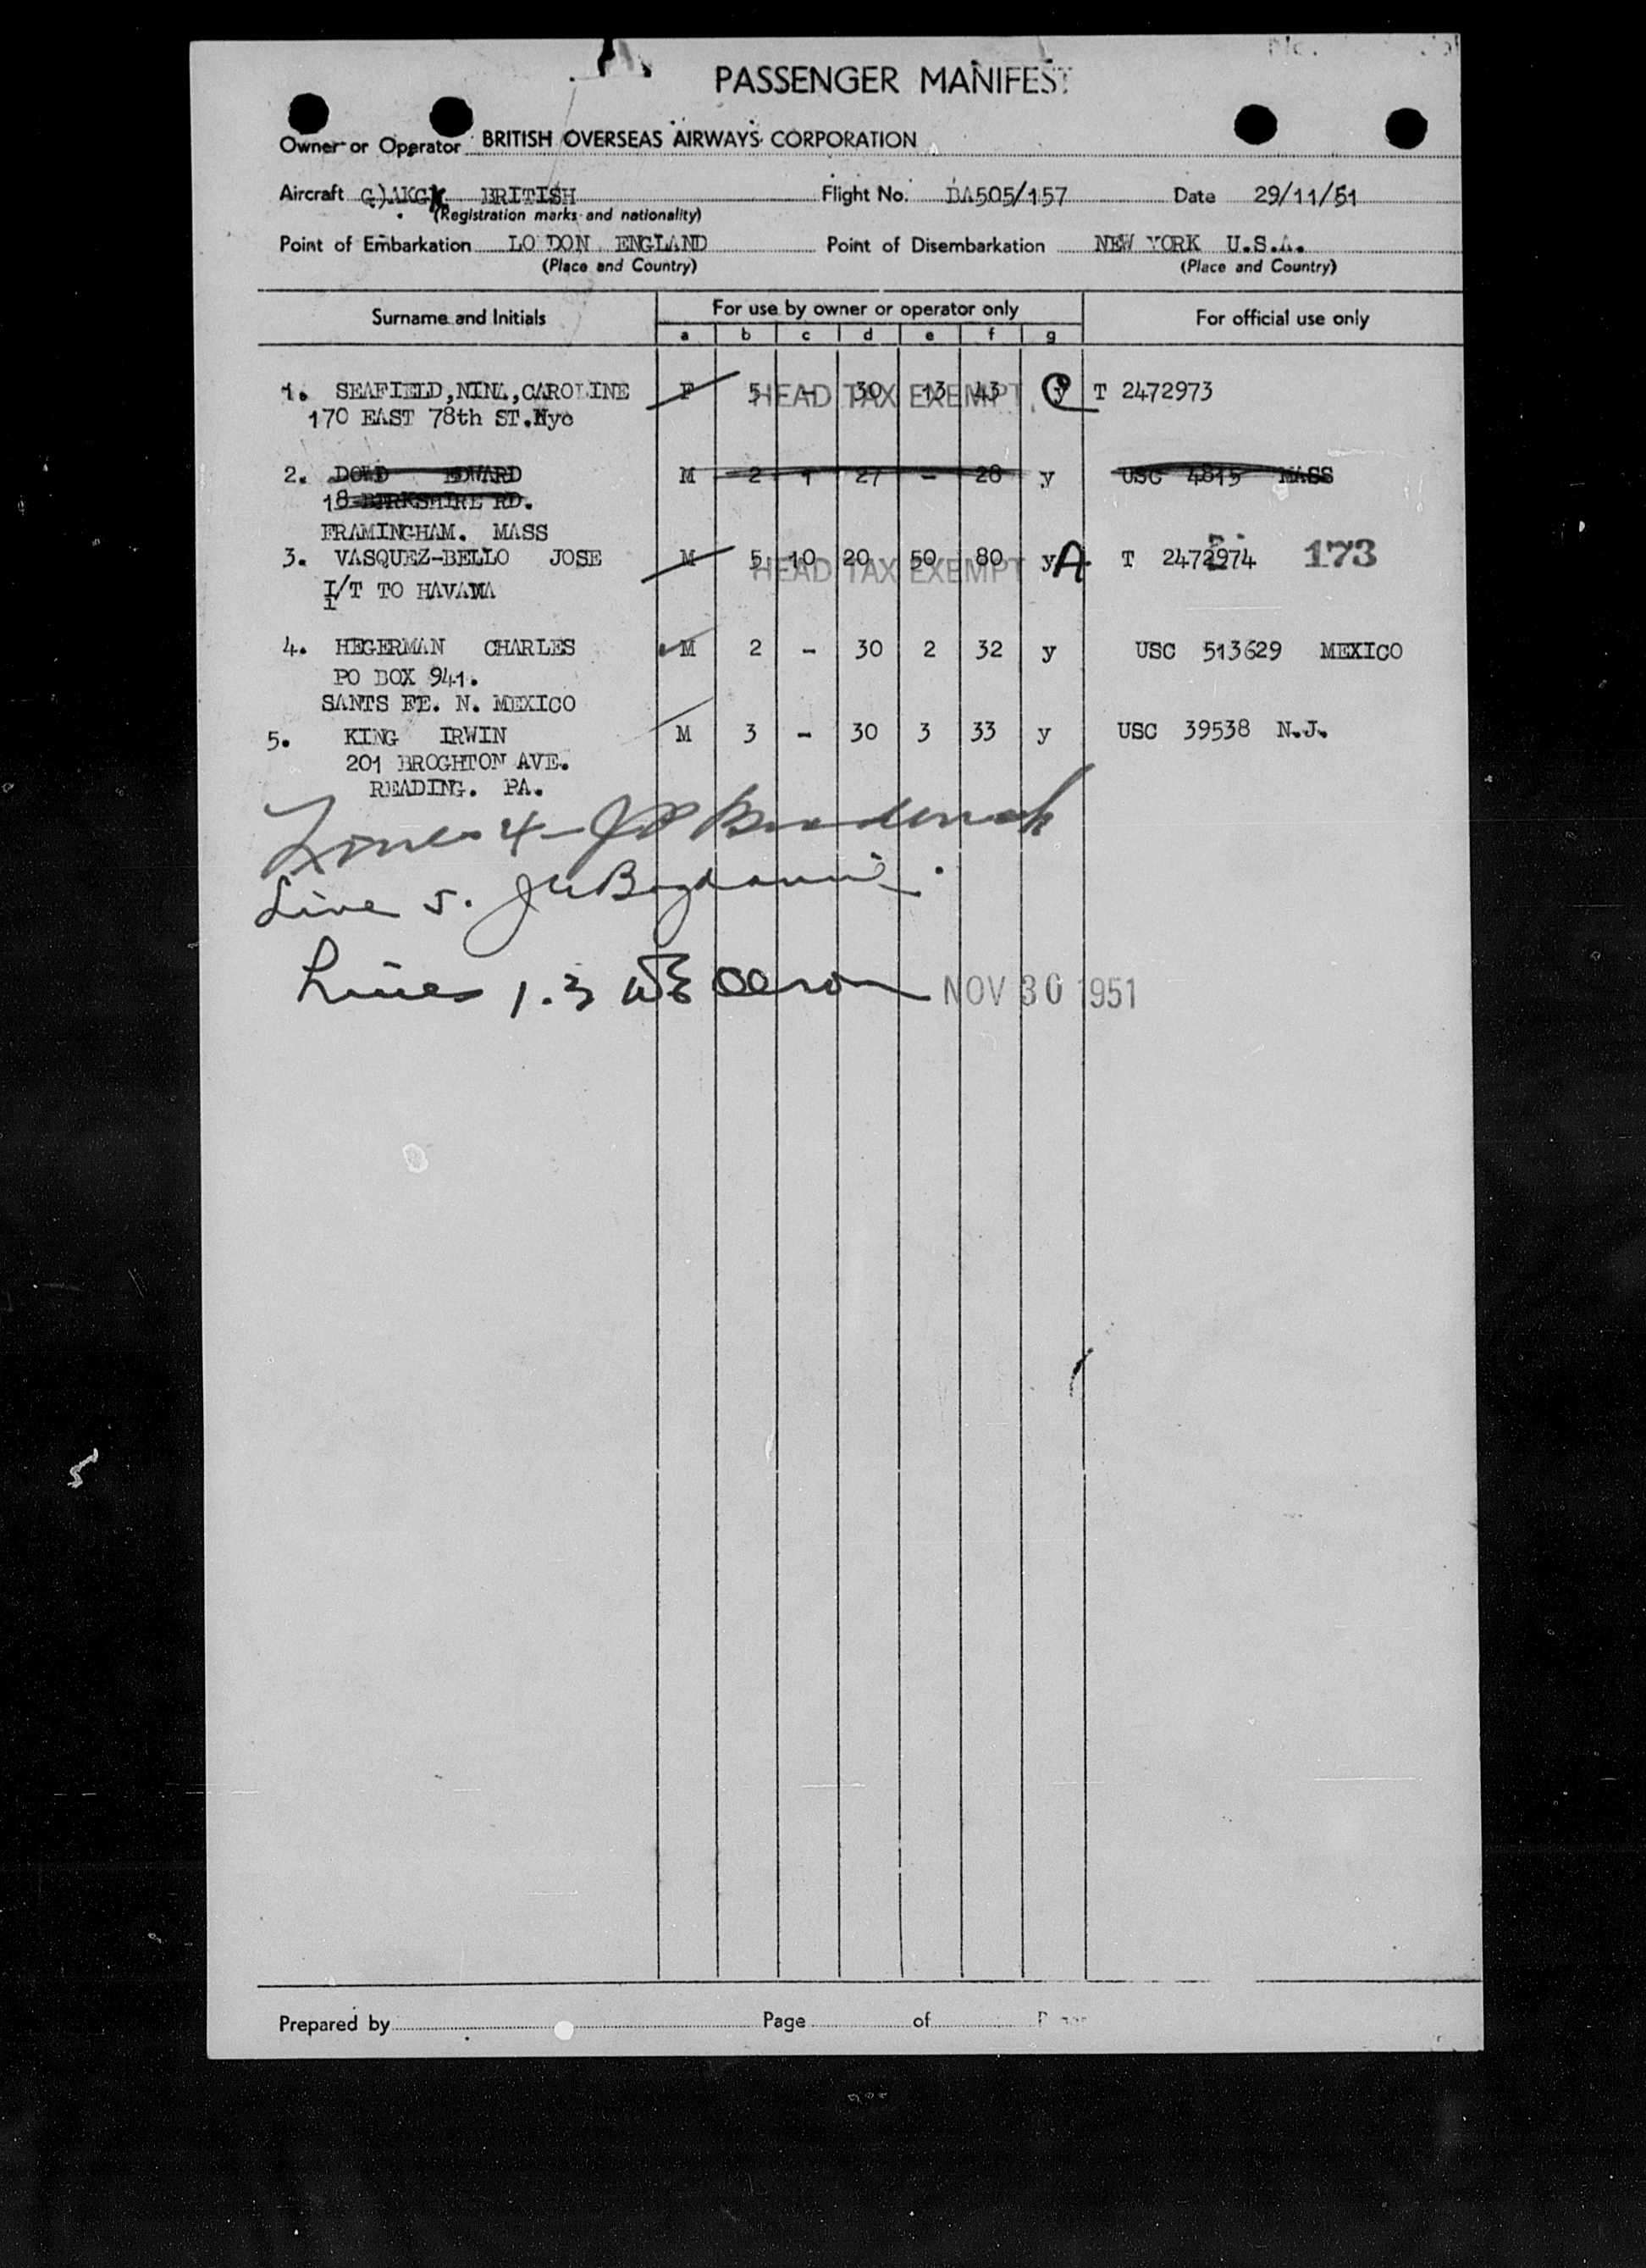 PASSENGER MANIFEST
Owner or Operator BRITISH OVERSEAS AIRWAYS CORPORATION
Aircraft G)AKGK BRITISH Flight No. BA505/157 Date 29/11/51
(Registration marks and nationality)
Point of Embarkation LO DON ENGLAND Point of Disembarkation NEW YORK U.S.A.
(Place and Country) (Place and Country)
Surname and Initials For use by owner or operator only For official use only
a b c d e f g
1. SEAFIELD,NINA,CAROLINE F 5 - 30 13 43 y T 2472973
HEAD TAX EXEMPT
170 EAST 78th ST.Nyc
2. DOWD EDWARD M 2 1 27 - 28 y USC 4815 MASS
18 BIRKSHIRE RD.
FRAMINGHAM. MASS
3. VASQUEZ-BELLO JOSE M 5 10 20 50 80 y A T 2472974 173
HEAD TAX EXEMPT
I/T TO HAVANA
4. HEGERMAN CHARLES M 2 - 30 2 32 y USC 513629 MEXICO
PO BOX 941.
SANTS FE. N. MEXICO
5. KING IRWIN M 3 - 30 3 33 y USC 39538 N.J.
201 BROGHTON AVE.
READING. PA.
Lines 4 -
Line 5.
Lines 1.3 NOV 30 1951
Prepared by Page of